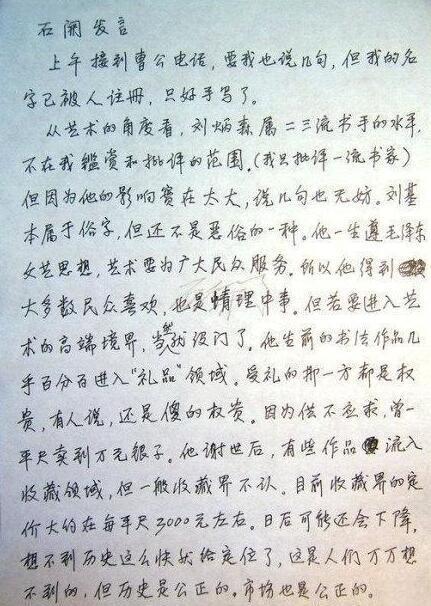 石开发言
上午接到曹公电话,要我也说几句,但我的名
字已被人注册,只好手写了。
从艺术的角度看,刘炳森属二三流书手的水平,
不在我鉴赏和批评的范围。(我只批评一流书家)
但因为他的影响实在太大,说几句也无妨。刘基
本属于俗字,但还不是恶俗的一种。他一生遵毛泽东
文艺思想,艺术要为广大民众服务。所以他得到
大多数民众喜欢,也是情理中事。但若要进入艺
术的高端境界,当然就没门了。他生前的书法作品几
乎百分百进入“礼品”领域。受礼的那一方都是权
贵,有人说,还是傻的权贵。因为供不应求,曾一
平尺卖到万元银子。他谢世后,有些作品流入
收藏领域,但一般收藏界不认。目前收藏界的定
价大约在每平尺3000元左右。日后可能还会下降,
想不到历史这么快就给定位了,这是人们万万想
不到的,但历史是公正的。市场也是公正的。